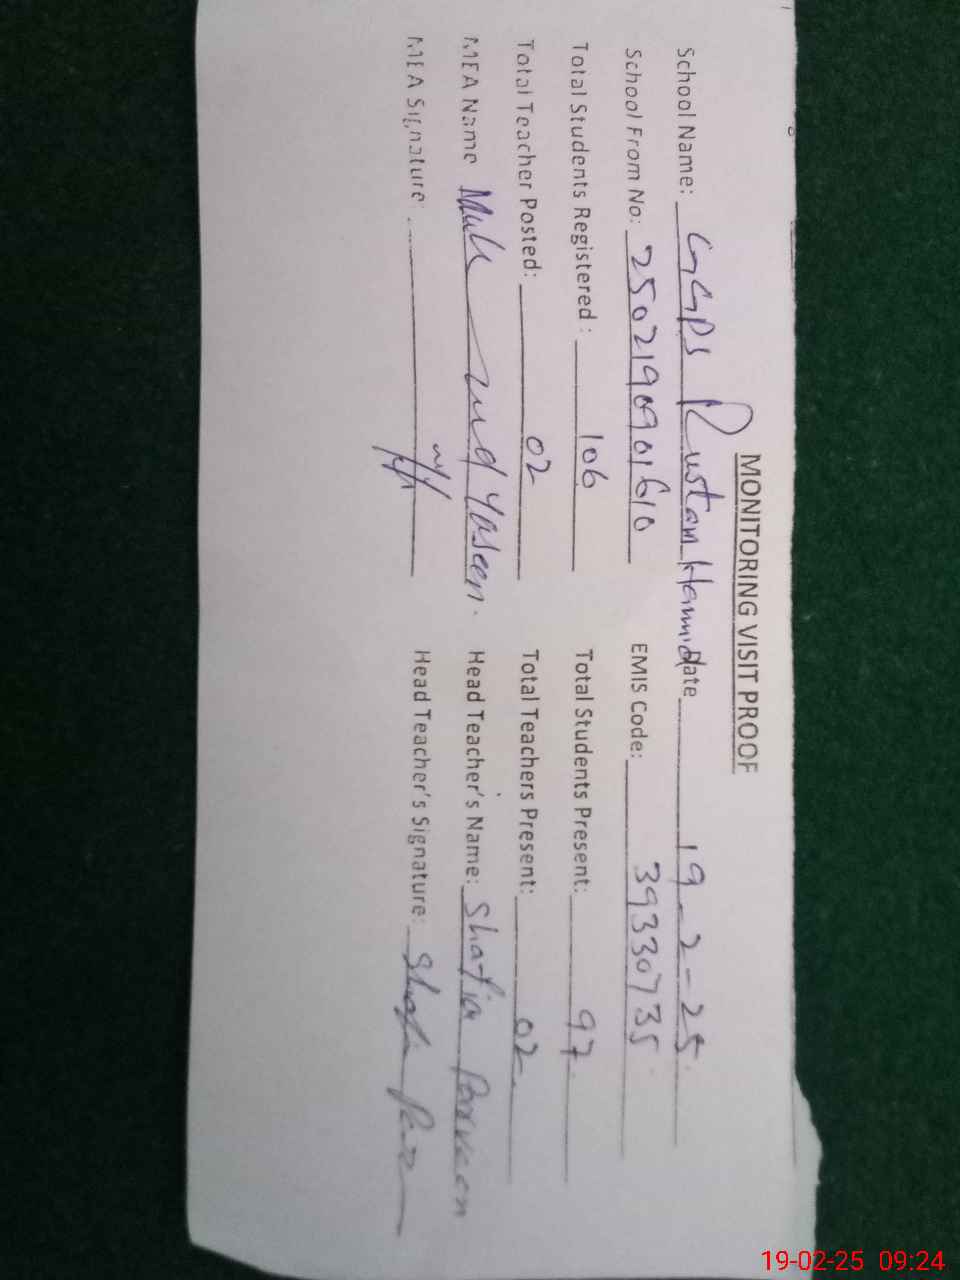 MONITORING VISIT PROOF
School Name: GGPS Rustam Hamid Date 19-2-25
School From No: 2502190901610 EMIS Code: 39330735
Total Students Registered : 106 Total Students Present: 97
Total Teacher Posted: 02 Total Teachers Present: 02
MEA Name Muhammad Yaseen. Head Teacher's Name: Shafia Parveen
MEA Signature: Head Teacher's Signature:
19-02-25 09:24